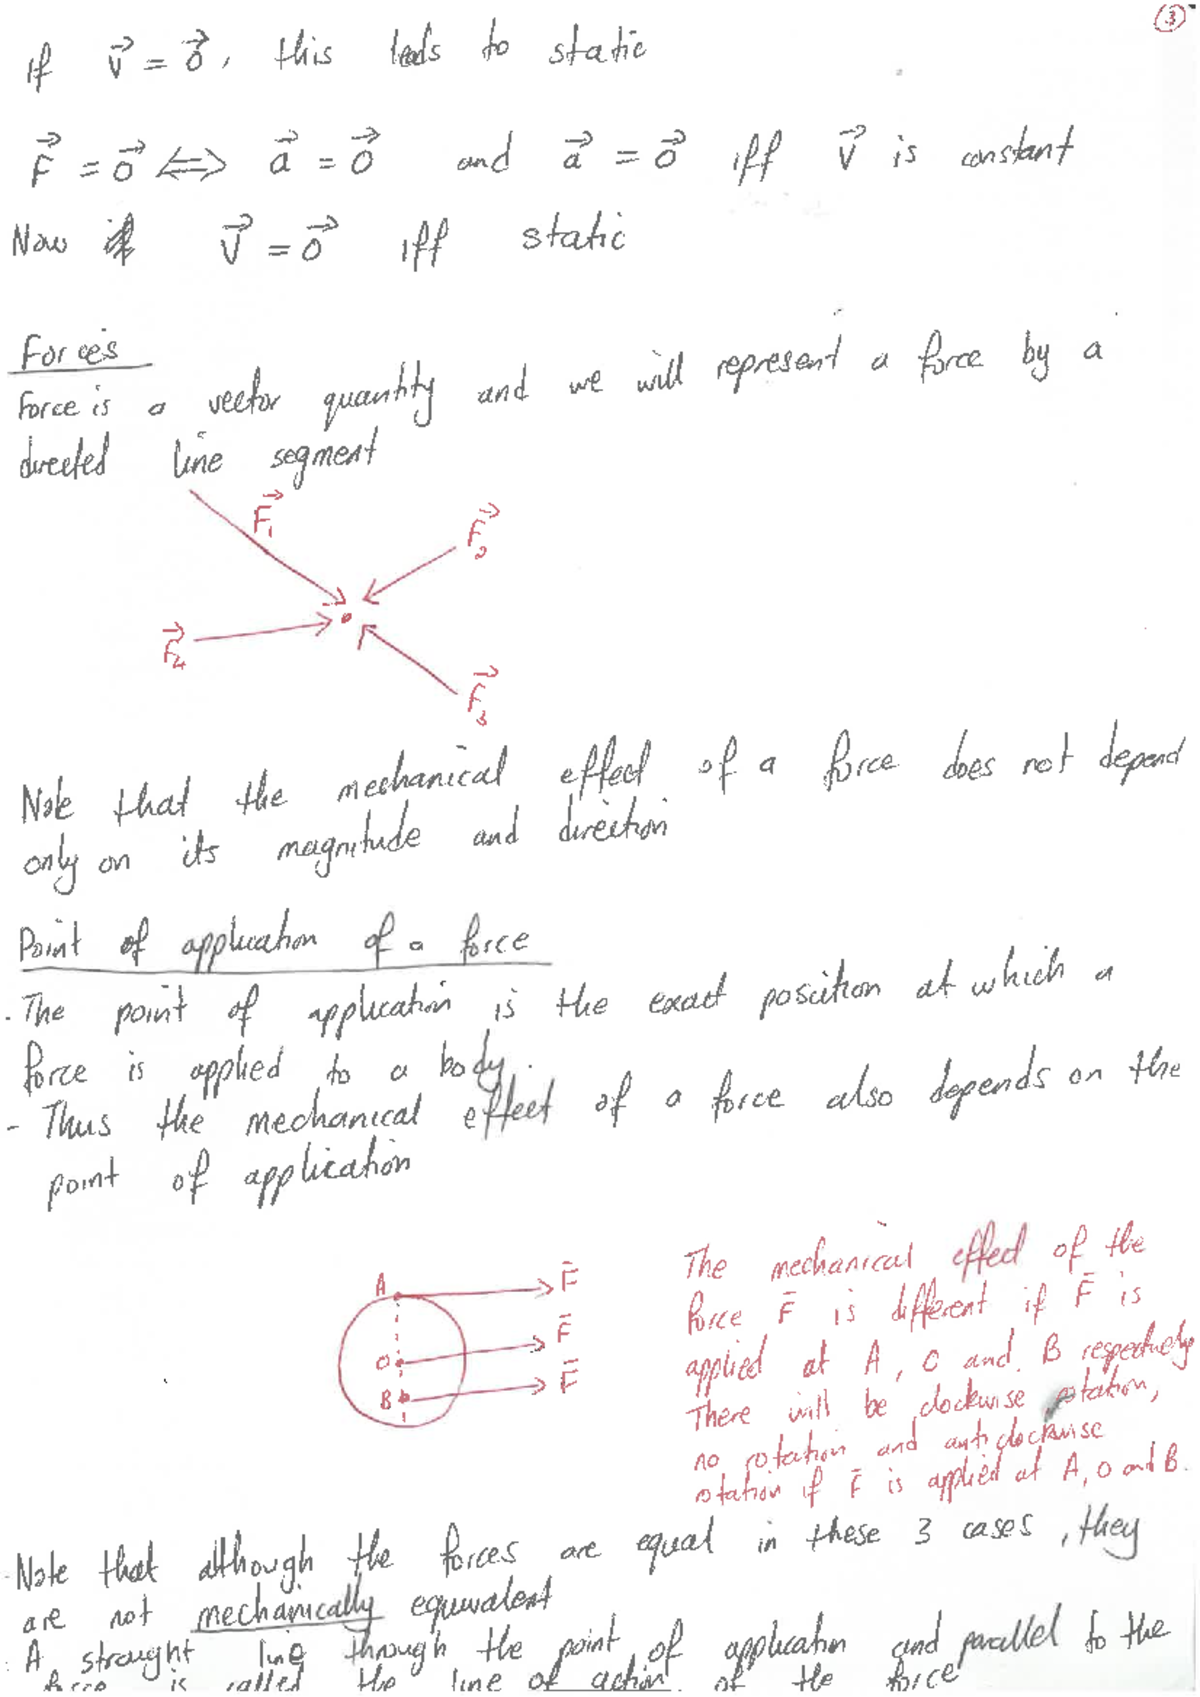 3
if V⃗ = 0⃗, this leads to static
F⃗ = 0⃗ ⟺ a⃗ = 0⃗ and a⃗ = 0⃗ iff V⃗ is constant
Now V⃗ = 0⃗ iff static
Forces
Force is a vector quantity and we will represent a force by a
directed line segment
F⃗₁
F⃗₂
F⃗₄
F⃗₃
Note that the mechanical effect of a force does not depend
only on its magnitude and direction
Point of application of a force
. The point of application is the exact position at which a
force is applied to a body.
- Thus the mechanical effect of a force also depends on the
point of application
A F̄
O F̄
B F̄
The mechanical effect of the
force F̄ is different if F̄ is
applied at A, O and B respectively
There will be clockwise rotation,
no rotation and anticlockwise
rotation if F̄ is applied at A, O and B.
. Note that although the forces are equal in these 3 cases, they
are not mechanically equivalent
. A straight line through the point of application and parallel to the
force is called the line of action of the force